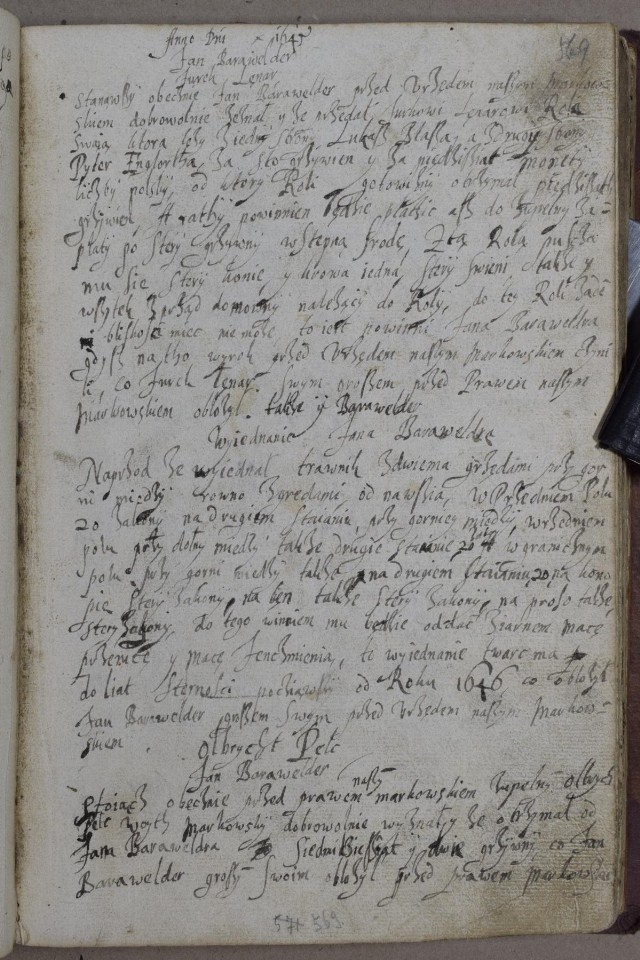 Anno Dni 1645
569
Jan Barawelder
Jurek Lenar
Stanąwszy obecznie Jan Barawelder przed Vrzedem naszym Markows-
skiem dobrowolnie zeznał, yze przedał Jurkowi Lenarowi Rolą
swoią ktora lezy ziedny strony Lukasz Blasza, a zdrugi strony
Pyter Inglortha, za sto grzywien y za piędzissiąt monety
liczby polski, od ktory Roli gotowizny otrzymał piędzissiąt
grzywien, A rathy powinnien będzie płacic asz do zupełny za-
płaty po sztery grzywny wstępną srodę, Ztą Rolą puszcza
mu sie sztery konie y krowa iedna, sztery swieni, także y
wszytek zprząd domowny należący do Roly, do tey Roli żadę
bliskosc miec nie może, to iest powinni Jana Barawełdra
gdysz na tho wyrok przed Vrzedem naszym Markowskiem czyni
li, co Jurek Lenar swym groszem przed Prawem naszym
Markowskiem obłożył także y Barawelder
Wyiednanie Jana Barawełdra
Naprzod że wyiednał trawnik zdwiema grzędami przy gor
ni miedzy rowno zgrędami, od nawsia, WPrzedniem Polu
20 zahony na drugiem staianiu, przy gorniey miedzy, wsrzedniem
polu przy dolny miedzy także drugie staianie 20 wgranicznym
polu przy gorni miedzy także na drugiem staianiu 20, na kono
pie sztery zahony, na len także sztery zahony, na proso także
sztery zahony, do tego winniem mu będzie oddać ziarnem macę
pszenice y macę Jenczmienia, to wyiednanie trwać ma
do liat szternosci począwszy od Roku 1646 co obłożył
Jan Barawelder groszem swym przed Vrzedem naszym Markow-
skiem. Olbrycht Pelc
Jan Barawelder
Stoiącz obecznie przed prawem naszym markowskiem zupełny Olbrych
Pelc woyth Markowsky dobrowolnie wyznał, ze otrzymał od
Jana Barawełdra siedmdziesząt y dwie grzywny co Jan
Barawelder groszy swoim obłożył przed prawem Markowskiem
571 569